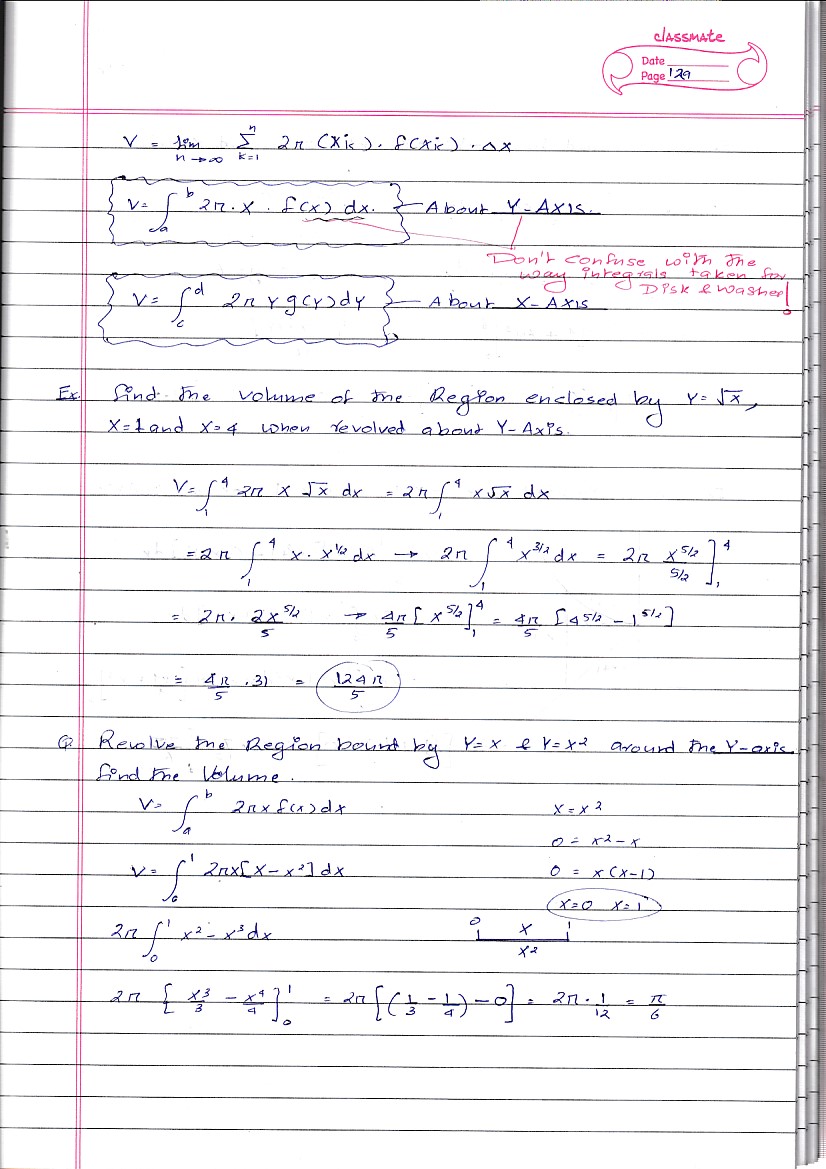 classmate
Date
Page 129
V = lim n→∞ Σ k=1 n 2π (Xk) · f(Xk) · Δx
V = ∫ a b 2π · x · f(x) dx. — About Y-Axis.
Don't confuse with the
way integrals taken for
Disk & Washer!
V = ∫ c d 2π y g(y) dy — About X-Axis
Ex. Find the volume of the Region enclosed by Y = √x,
X=1 and X=4 when revolved about Y-Axis.
V = ∫ 1 4 2π x √x dx = 2π ∫ 1 4 x√x dx
= 2π ∫ 1 4 x · x^1/2 dx → 2π ∫ 1 4 x^3/2 dx = 2π x^5/2 / 5/2 ] 1 4
= 2π · 2x^5/2 / 5 → 4π/5 [ x^5/2 ] 1 4 = 4π/5 [ 4^5/2 − 1^5/2 ]
= 4π/5 · 31 = 124π/5
Q Revolve the Region bound by Y=x & Y=x² around the Y-axis
find the Volume.
V = ∫ a b 2πx f(x) dx
x = x²
0 = x² − x
V = ∫ 0 1 2πx[x − x²] dx
0 = x(x−1)
x=0 x=1
2π ∫ 0 1 x² − x³ dx
0 x 1
x²
2π [ x³/3 − x⁴/4 ] 0 1 = 2π [ (1/3 − 1/4) − 0 ] = 2π · 1/12 = π/6